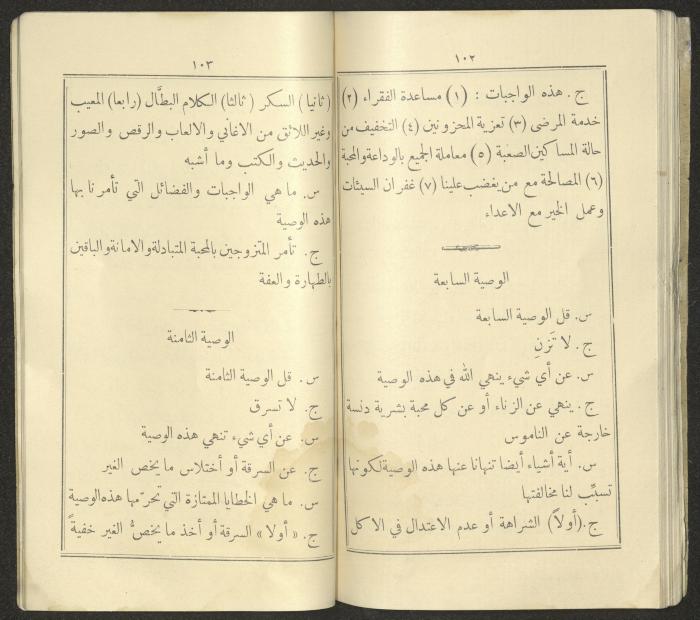 ١٠٢
ج. هذه الواجبات : (١) مساعدة الفقراء (٢)
خدمة المرضى (٣) تعزية المحزونين (٤) التخفيف من
حالة المساكين الصعبة (٥) معاملة الجميع بالوداعة والمحبة
(٦) المصالحة مع من يغضب علينا (٧) غفران السيئات
وعمل الخير مع الاعداء
الوصية السابعة
س. قل الوصية السابعة
ج. لا تَزنِ
س. عن أي شيء ينهي الله في هذه الوصية
ج. ينهي عن الزناء أو عن كل محبة بشرية دنسة
خارجة عن الناموس
س. أية أشياء أيضا تنهانا عنها هذه الوصية لكونها
تسبِّب لنا مخالفتها
ج. (أولاً) الشراهة أو عدم الاعتدال في الاكل
١٠٣
(ثانيا) السكر (ثالثا) الكلام البطَّال (رابعا) المعيب
وغير اللائق من الاغاني والالعاب والرقص والصور
والحديث والكتب وما أشبه
س. ما هي الواجبات والفضائل التي تأمرنا بها
هذه الوصية
ج. تأمر المتزوجين بالمحبة المتبادلة والامانة والباقين
بالطهارة والعفة
الوصية الثامنة
س. قل الوصية الثامنة
ج. لا تسرق
س. عن أي شيء تنهي هذه الوصية
ج. عن السرقة أو أختلاس ما يخص الغير
س. ما هي الخطايا الممتازة التي تحرّمها هذه الوصية
ج. « أولا » السرقة أو أخذ ما يخصُّ الغير خفيةً